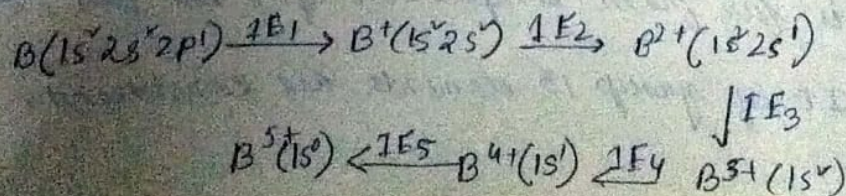 B(1s²2s²2p¹) —IE1→ B⁺(1s²2s²) —IE2→ B²⁺(1s²2s¹)
↓IE3
B⁵⁺(1s⁰) ←IE5— B⁴⁺(1s¹) ←IE4— B³⁺(1s²)